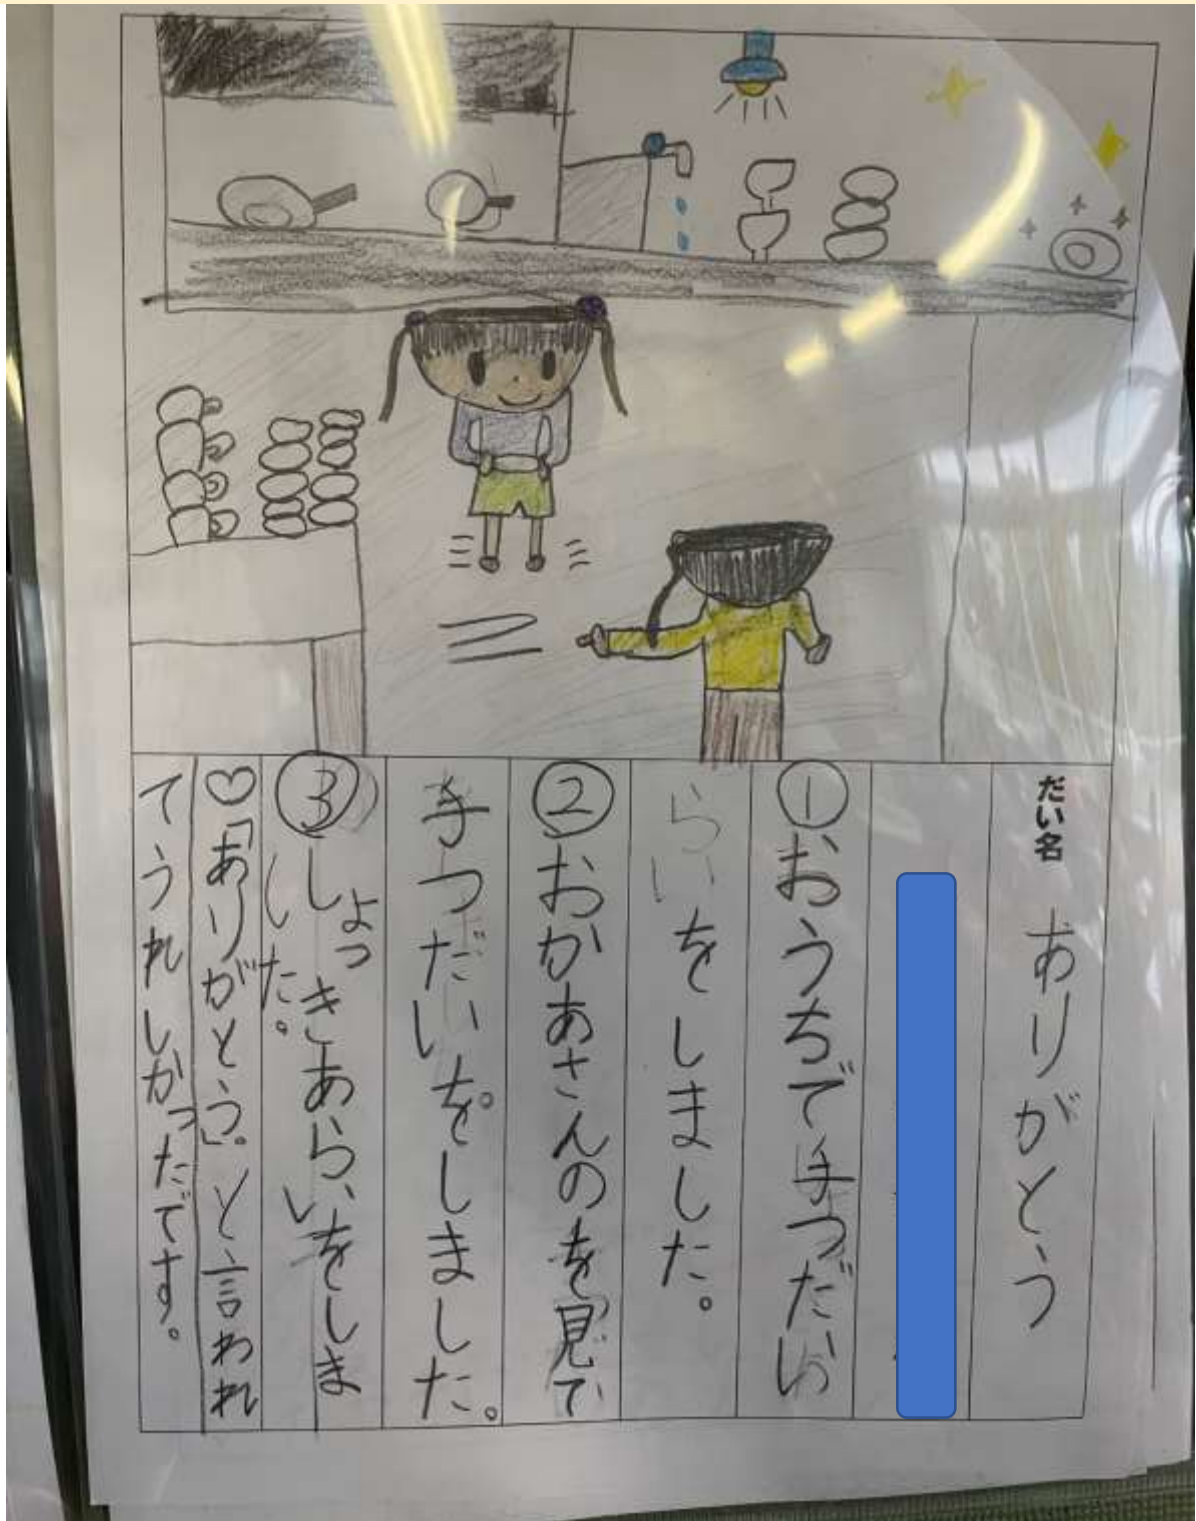 だい名 ありがとう
①おうちで手つだい
をしました。
②おかあさんのを見て
手つだいをしました。
③しょっきあらいをしま
した。
♡「ありがとう」。と言われ
てうれしかったです。